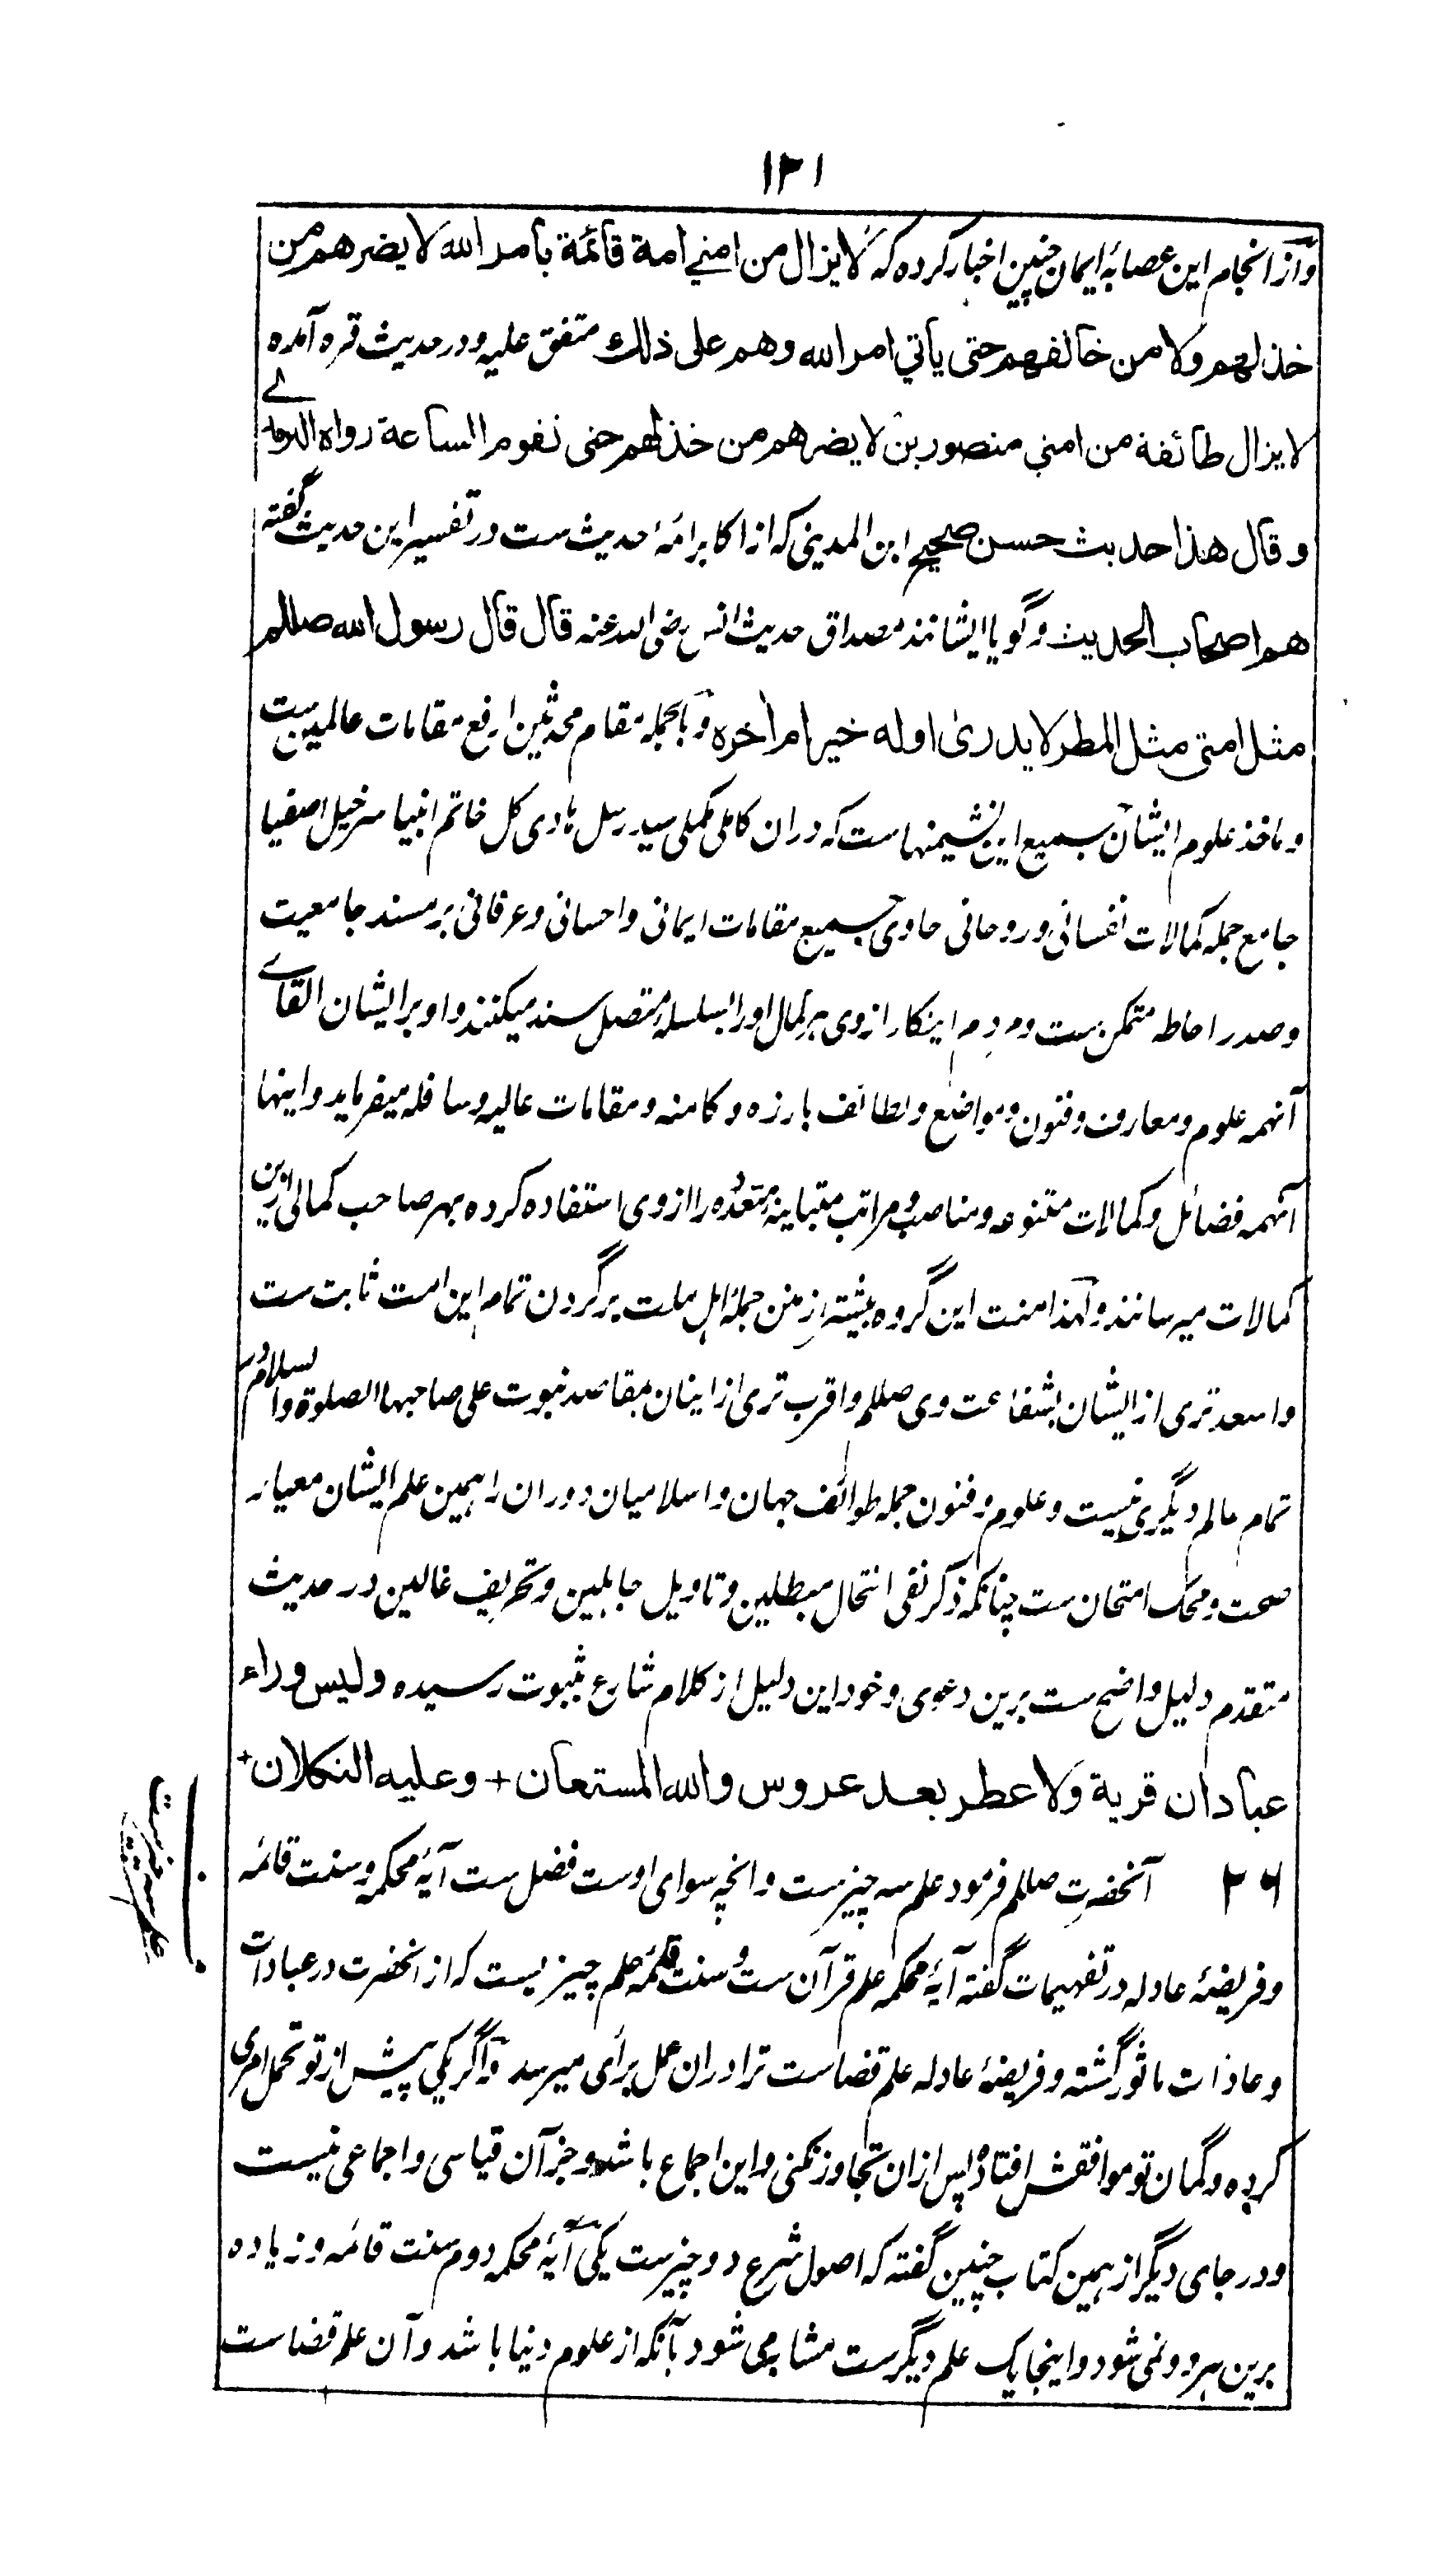 ۱۳۱
واز انجام این عصابۀ ایمان چنین اخبار کرده که لا یزال من امتي امة قائمة بأمر الله لا یضرهم من
خذلهم ولا من خالفهم حتی یأتي امر الله وهم علی ذلك متفق علیه ودر حدیث قره آمده
لا یزال طائفة من امتي منصورین لا یضرهم من خذلهم حتی تقوم الساعة رواه الترمذے
وقال هذا حدیث حسن صحیح ابن المدینی که از اکابر ائمۀ حدیث ست در تفسیر این حدیث گفته
هم اصحاب الحدیث وگویا ایشانند مصداق حدیث انس رضی الله عنه قال قال رسول الله صللم
مثل امتي مثل المطر لا یدری اوله خیر ام آخره وبالجمله مقام محدثین ارفع مقامات عالمین ست
وماخذ علوم ایشان سمیع این نشیمنهاست که دران کاملی مکملی سید رسل هادی کل خاتم انبیا سرخیل اصفیا
جامع جمله کمالات نفسانی وروحانی حاوی جمیع مقامات ایمانی واحسانی وعرفانی بر مسند جامعیت
وصدر احاطه متمکن ست ومردم اینکار از وی هر کمال او را بسلسلۀ متصل سند میکنند واو بر ایشان القاے
آنهمه علوم ومعارف وفنون ومواضع ولطائف بارزه وکامنه ومقامات عالیه وسافله میفرماید واینها
آنهمه فضائل وکمالات متنوعه ومناصب ومراتب متباینه متعدده را از وی استفاده کرده بهر صاحب کمالی ازین
کمالات میرسانند ولهذا منت این گروه بیشتر از منن جملۀ اهل ملت بر گردن تمام این امت ثابت ست
واسعد تری از ایشان بشفاعت وی صللم واقرب تری از اینان بمقاصد نبوت علی صاحبها الصلوة والسلام در
تمام عالم دیگری نیست وعلوم وفنون جمله طوائف جهان واسلامیان دوران را همین علم ایشان معیار
صحت ومحک امتحان ست چنانکه ذکر نفی انتحال مبطلین وتاویل جاهلین وتحریف غالین در حدیث
متقدم دلیل واضح ست برین دعوی وخود این دلیل از کلام شارع بثبوت رسیده ولیس وراء
عبادان قریة ولا عطر بعد عروس والله المستعان + وعلیه التکلان +
۲۶ آنحضرت صللم فرمود علم سه چیز ست وانچه سوای اوست فضل ست آیۀ محکمه وسنت قائمه
علم سه چیز ست
وفریضۀ عادله در تفهیمات گفته آیۀ محکمه علم قرآن ست وسنت قائمه علم چیزیست که از انحضرت در عبادات
وعادات ماثور گشته وفریضۀ عادله علم قضاست ترا دران عمل برأی میرسد واگر یکی پیش از تو تحمل امری
کرده وگمان تو موافقش افتاد پس ازان تجاوز نکنی واین اجماع باشد وجز آن قیاسی واجماعی نیست
ودر جای دیگر از همین کتاب چنین گفته که اصول شرع دو چیز ست یکی آیۀ محکمه دوم سنت قائمه وزیاده
برین هر دو نمی شود واینجا یک علم دیگر ست مشابه می شود بآنکه از علوم دنیا باشد وآن علم قضاست